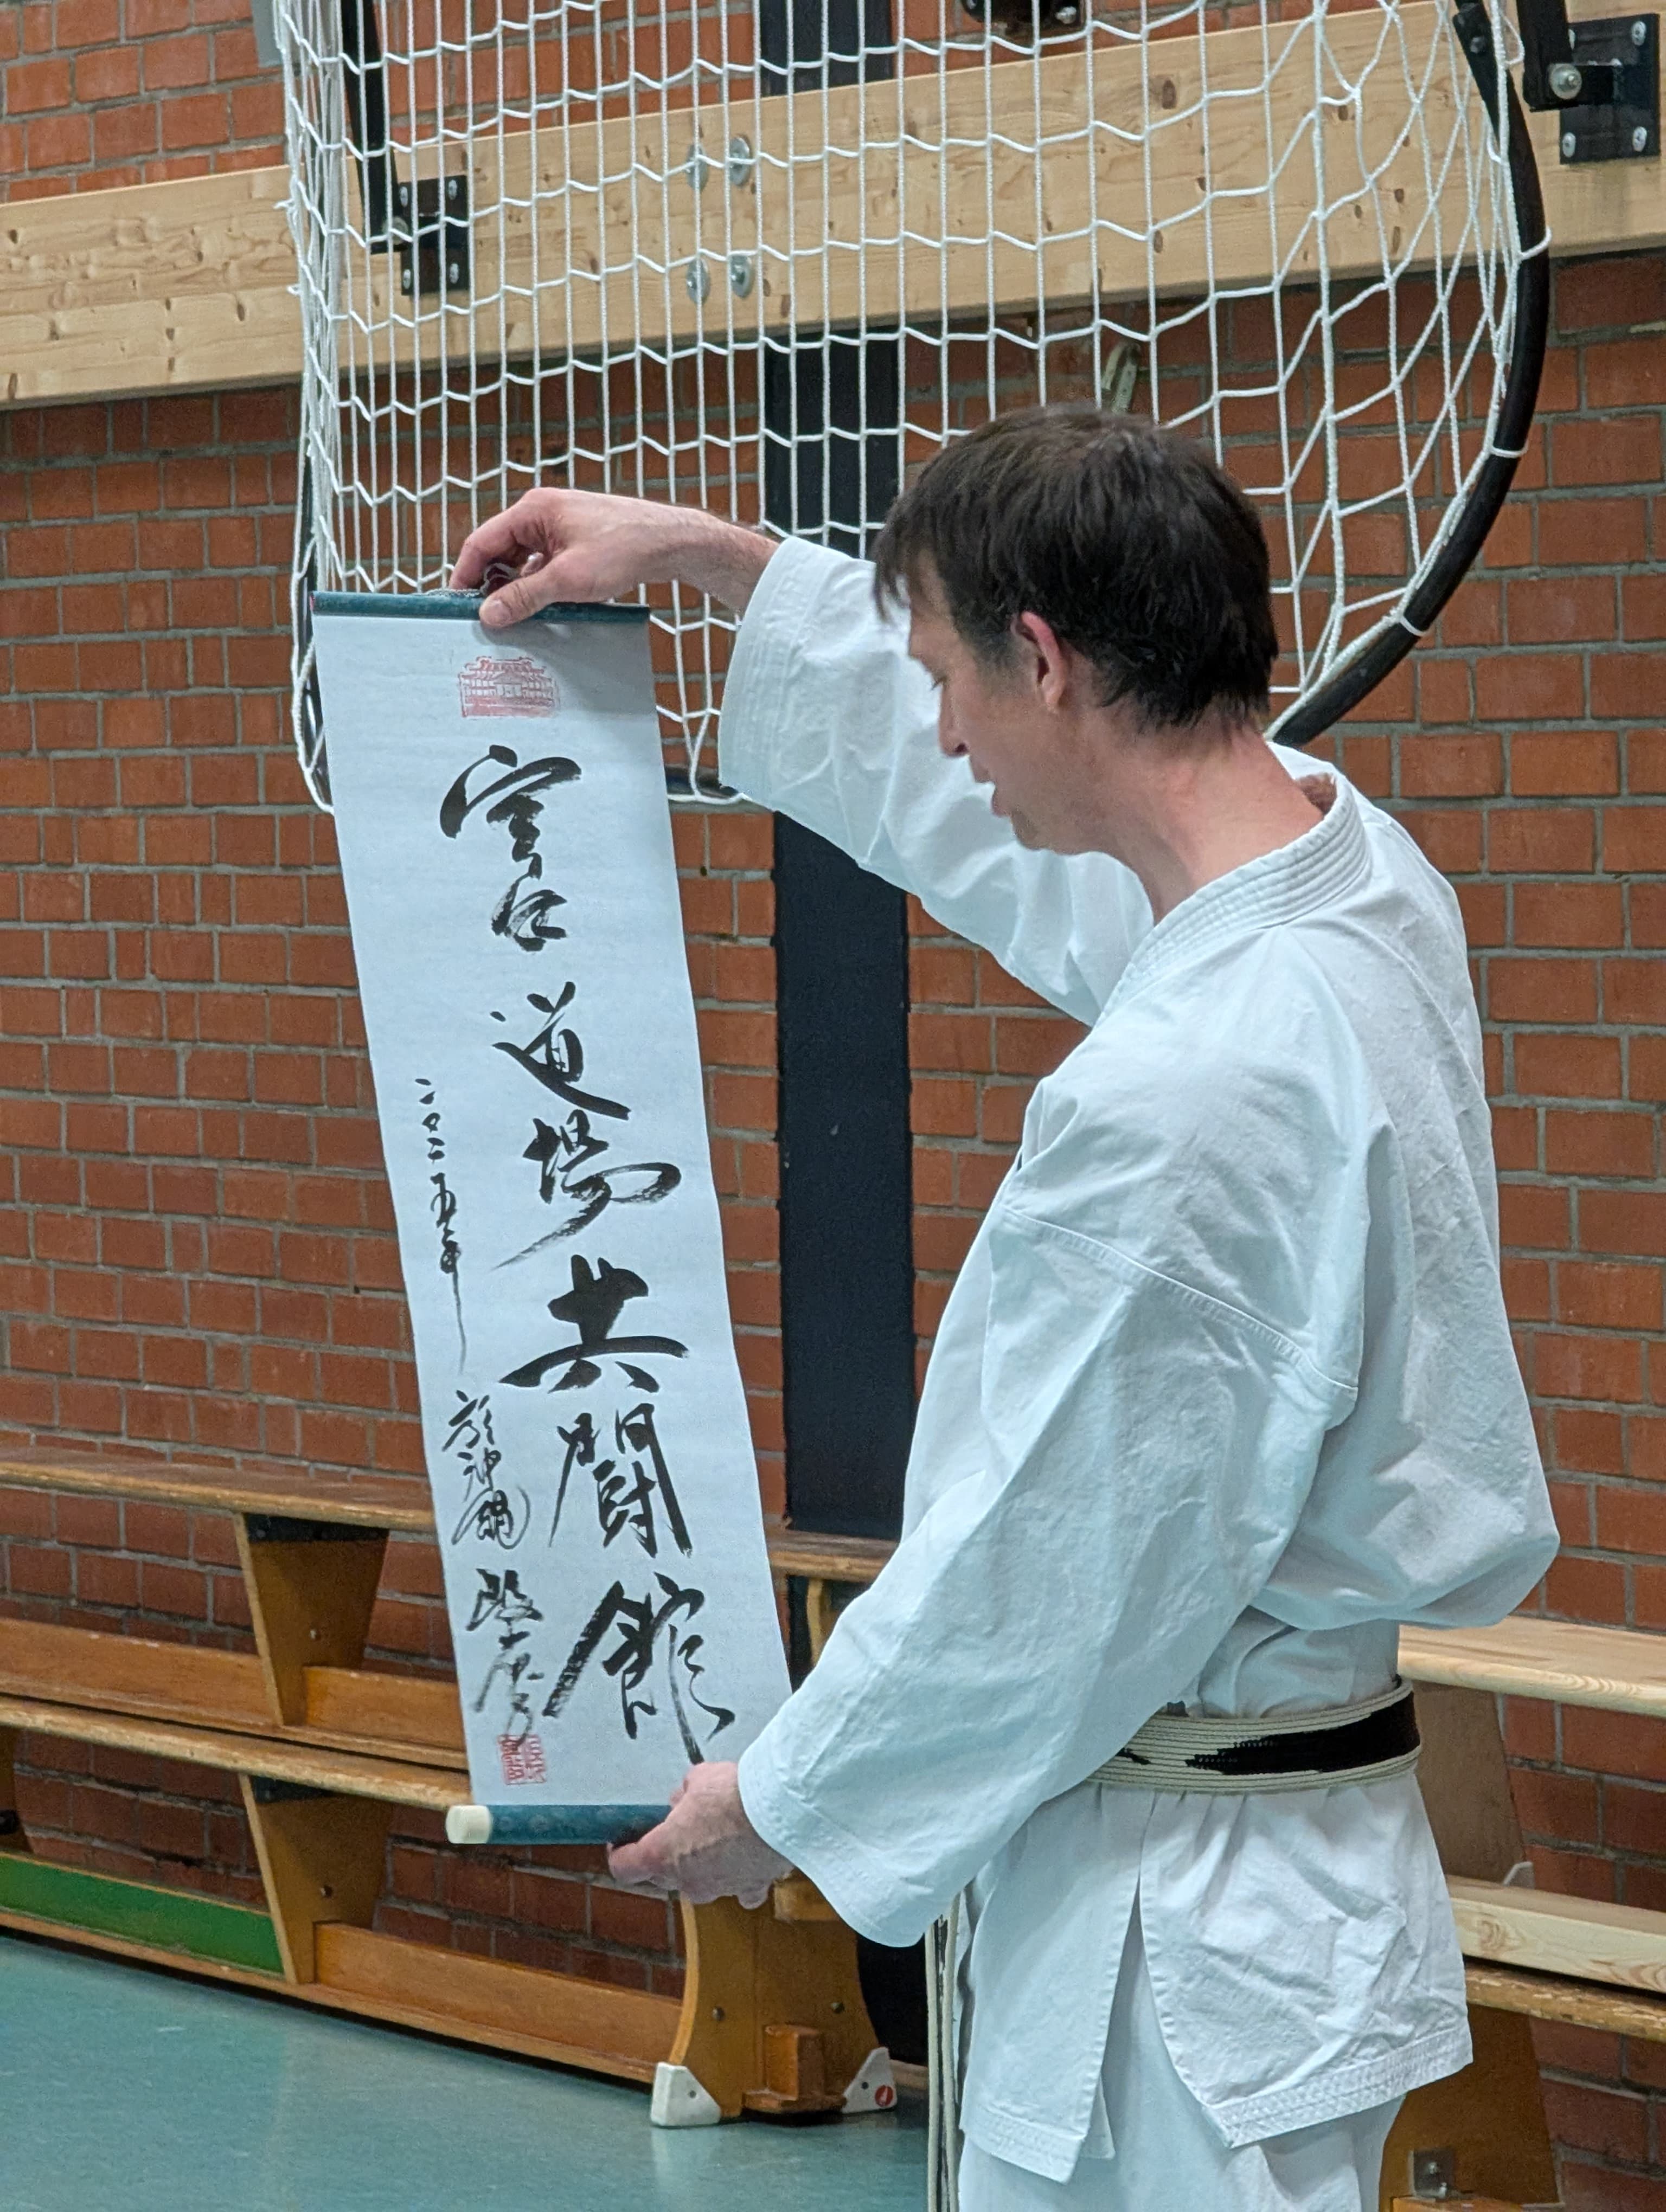 空手道場共闘館
二〇二五年 於沖縄